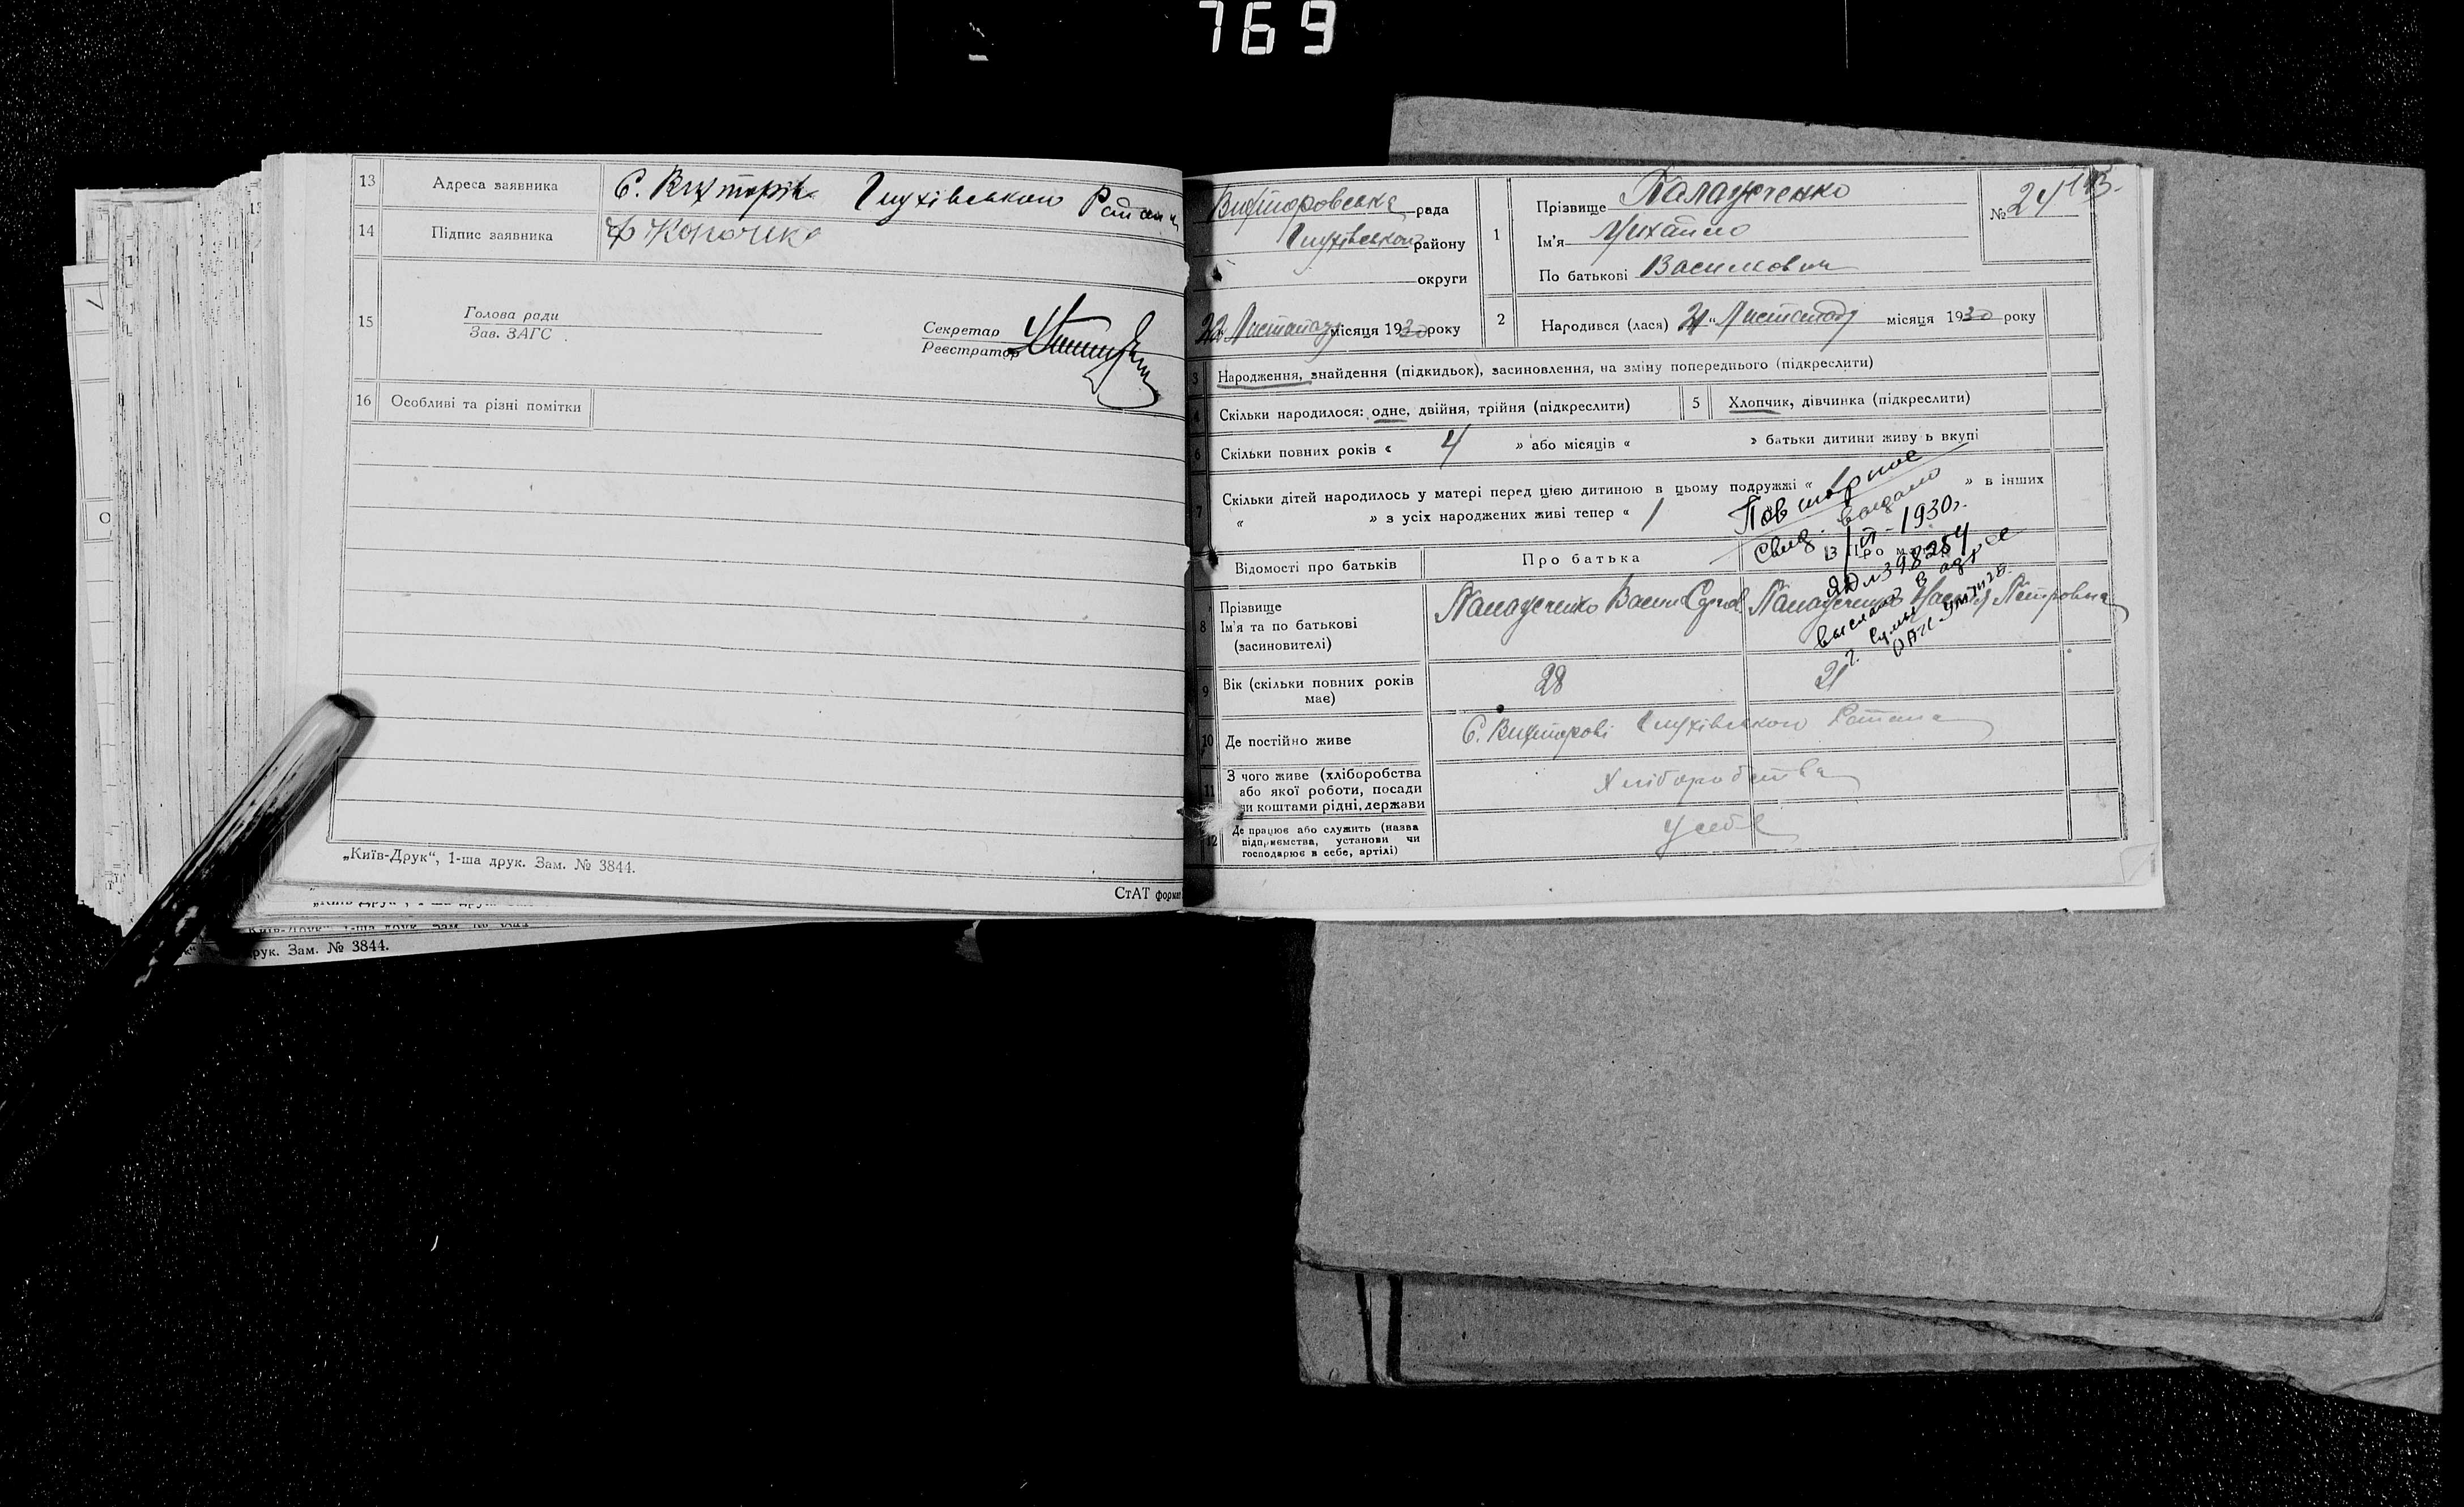 769
13 Адреса заявника С. Вихторів Глухівського Района
14 Підпис заявника
15 Голова ради
Зав. ЗАГС
Секретар
Реєстратор
16 Особливі та різні помітки
„Київ-Друк“, 1-ша друк. Зам. № 3844.
СтАТ формат
рук. Зам. № 3844.
рада
Глухівського району
округи
22 Листопаду місяця 1930 року
1 Прізвище
Ім'я Михайло
По батькові Василович
№ 24
2 Народився (лася) 21 „ Листопаду місяця 1930 року
3 Народження, знайдення (підкидьок), засиновлення, на зміну попереднього (підкреслити)
4 Скільки народилося: одне, двійня, трійня (підкреслити) 5 Хлопчик, дівчинка (підкреслити)
6 Скільки повних років « 4 » або місяців « » батьки дитини живу ь вкупі
7 Скільки дітей народилось у матері перед цією дитиною в цьому подружжі « » в інших
« » з усіх народжених живі тепер « 1
Повторное
свид. выдано
1930г.
398254
выслано в адрес
Відомості про батьків Про батька Про
8 Прізвище
Ім'я та по батькові
(засиновителі)
Петровна
9 Вік (скільки повних років
має) 28 21
10 Де постійно живе С. Вихторові Глухівського Района
11 З чого живе (хліборобства
або якої роботи, посади
чи коштами рідні, держави
Хліборобства
12 Де працює або служить (назва
підприємства, установи чи
господарює в себе, артілі)
У себе